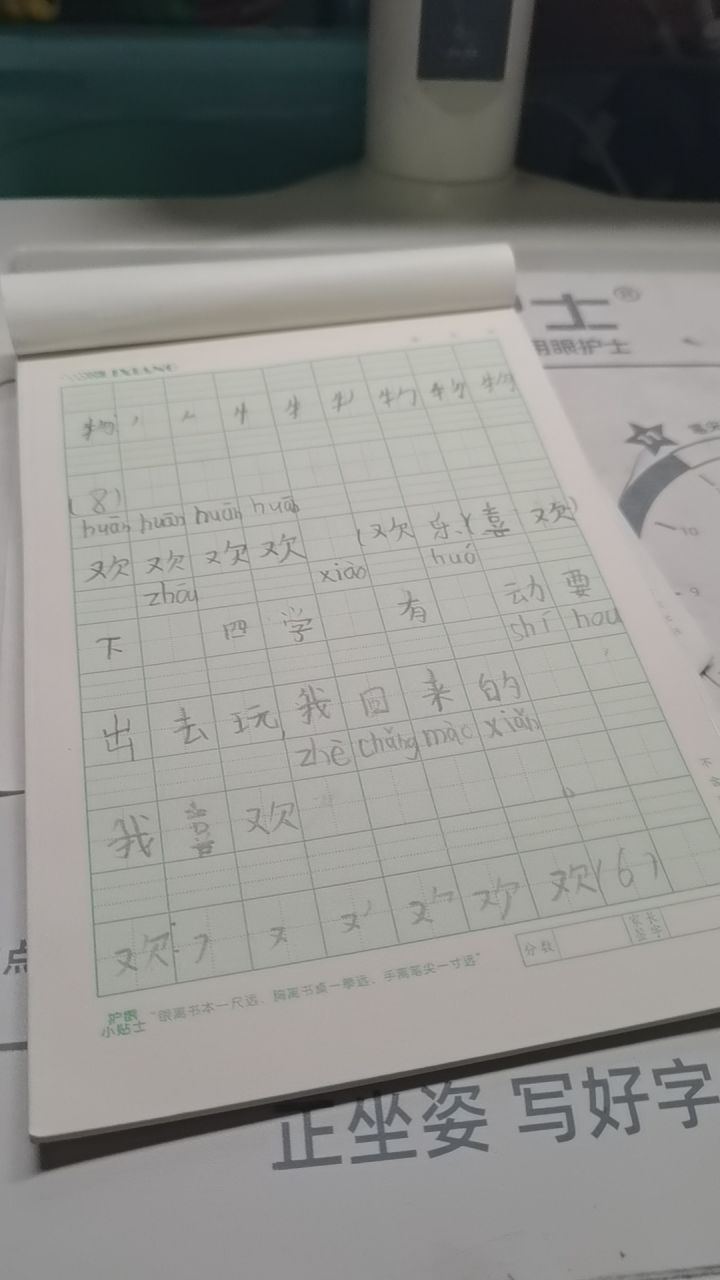 士®
用眼护士
物 丶 𠂉 牛 牜 牞 物 物 物
(8)
huān huān huān huān
欢 欢 欢 欢 (欢 乐)(喜 欢)
zhōu xiào huó
下 四 学 有 动 要
shí hou
出 去 玩, 我 回 来 的
zhè chǎng mào xiǎn
我 喜 欢
欢: ㇇ 又 欢 欢(6)
分数
家长签字
护眼小贴士 “眼离书本一尺远、胸离书桌一拳远、手离笔尖一寸远”
正坐姿 写好字
11
10
9